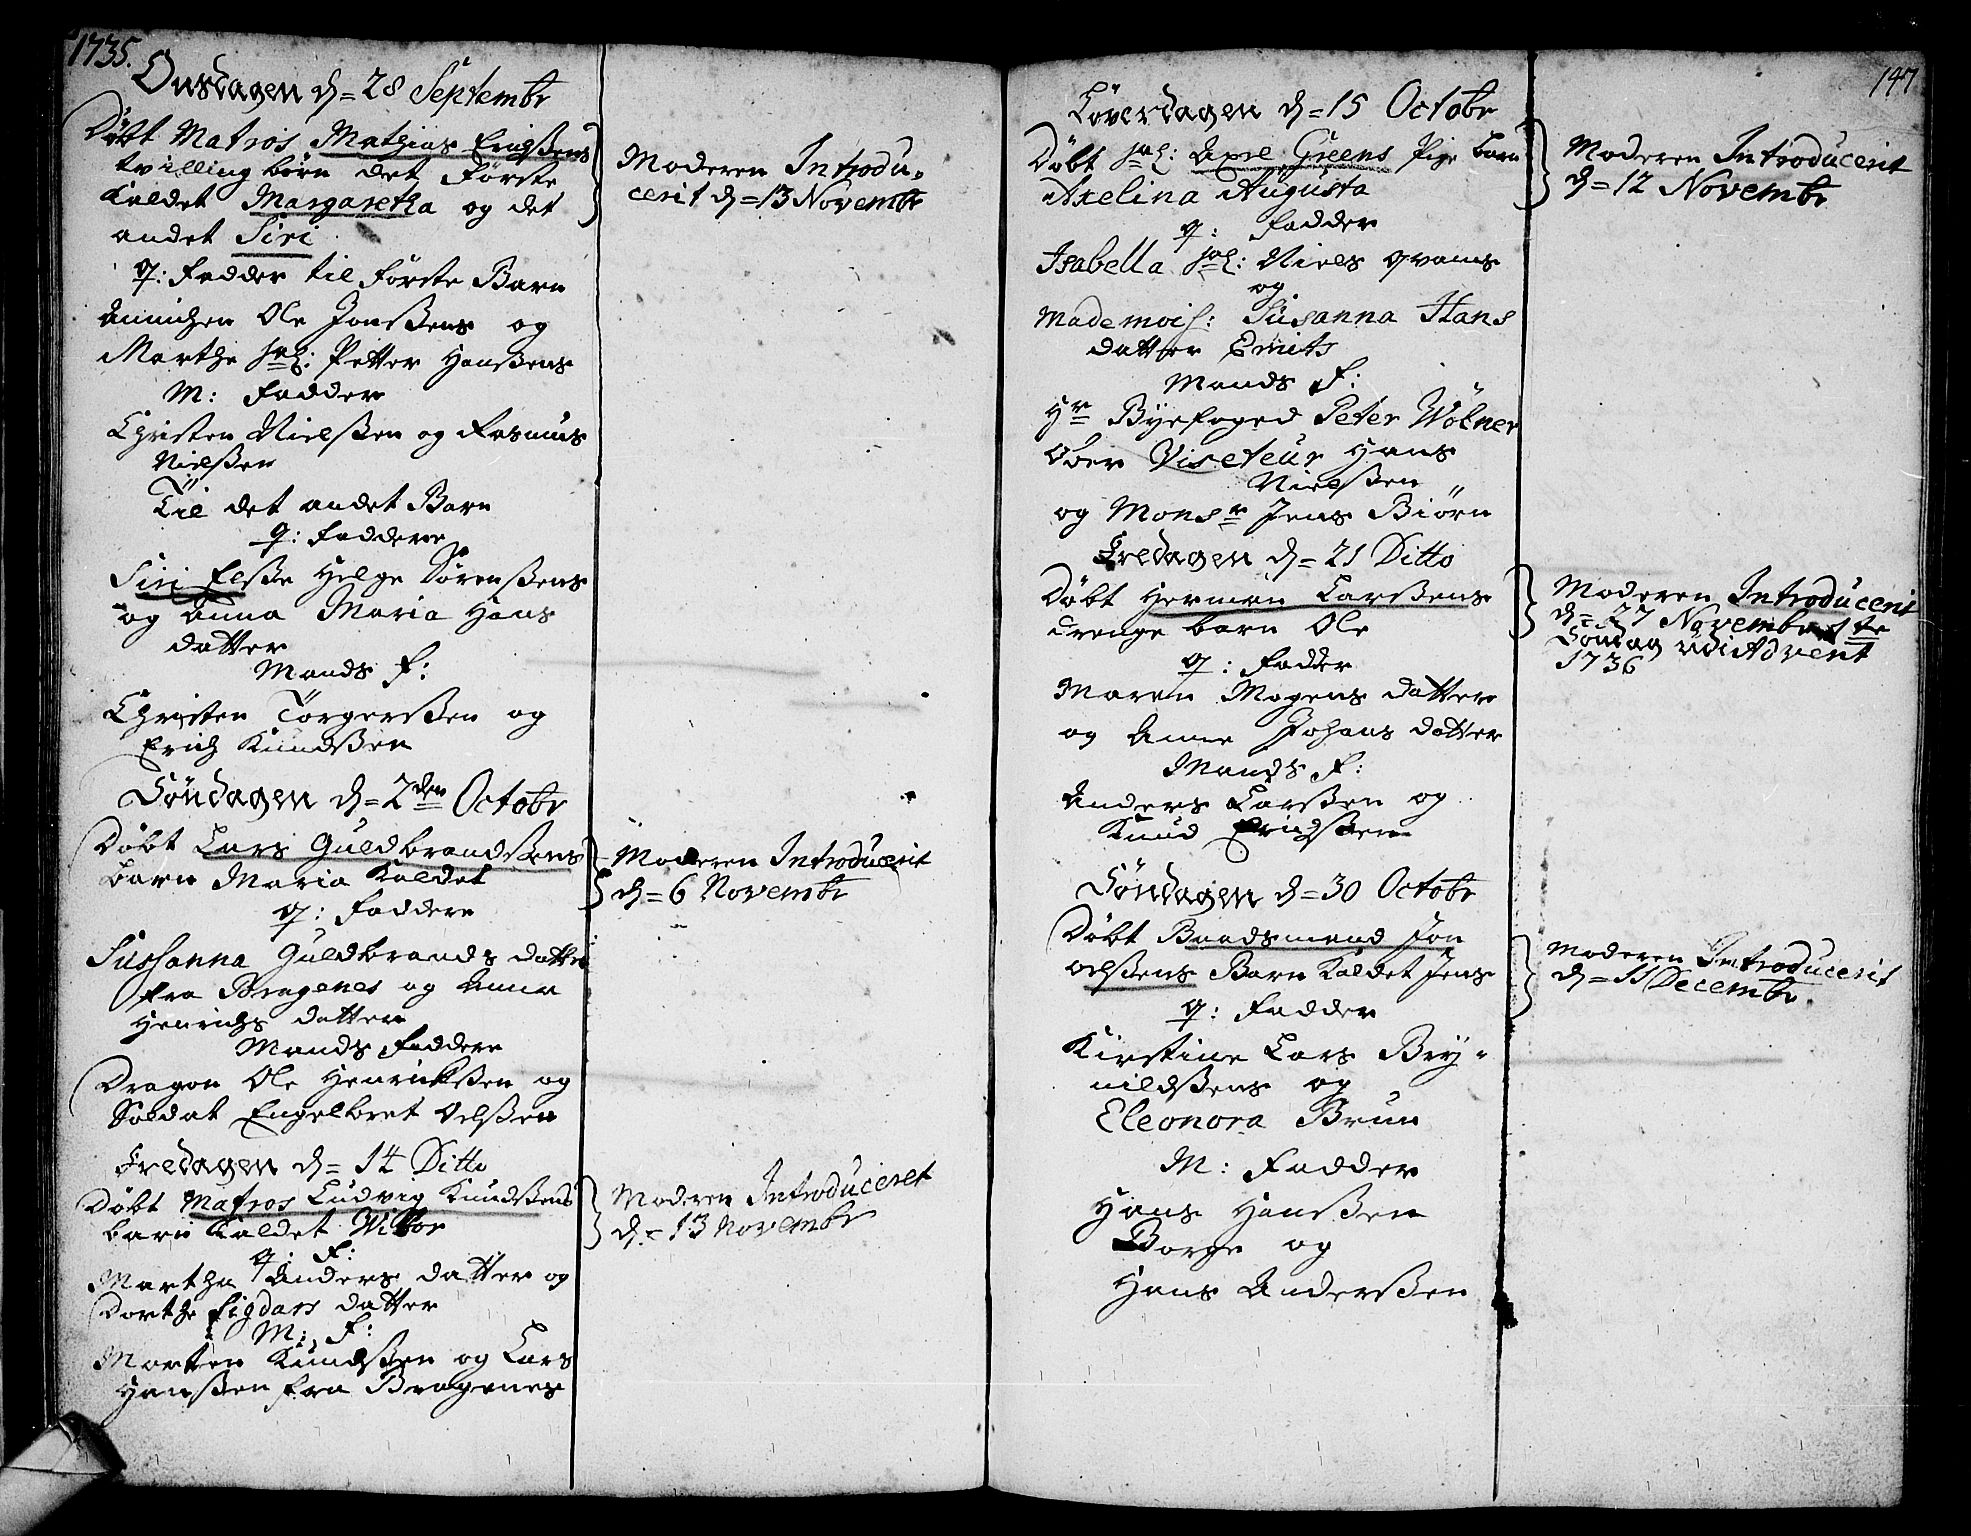 1735.
Onsdagen d= 28 Septembr
Döbt Matros Mathias Erichsens
tvilling börn det Förste
Kaldet Margaretha og det
andet Siri
q: Fadder til Förste Barn
Annichen Ole Jonßens og
Marthe sal: Petter Hanßens
M: Fadder
Christen Nielßen og Rasmus
Nielßen
Til det andet Barn
q: Faddere
Siri Elße Helge Sörenßens
og Anna Maria Hans
datter
Mands F:
Christen Törgerßen og
Erich Knudßen
Söndagen d= 2den Octobr
Döbt Lars Guldbrandßens
barn Maria Kaldet
q: Faddere
Sussanna Guldbrands datter
fra Bragenes og Anna
Henrichs datter
Mands Faddere
Dragon Ole Henrickßen og
Soldat Engelbret Oelßen
Fredagen d= 14 Ditto
Döbt Matros Ludvig Knudßens
barn Kaldet Wictor
q: F:
Martha Anders datter og
Dorthe Sigdars datter
M: F:
Morten Knudßen og Lars
Hanßen fra Bragenes
Moderen Introdu-
cerit d= 13 Novembr
Moderen Introducerit
d= 6 Novembr
Moderen Introduceret
d= 13 Novembr
147
Löverdagen d= 15 Octobr
Döbt sal: Axel Greens Pige barn
Axelina Augusta
q: Fadder
Isabella sal: Niels Qvams
og
Mademois: Susanna Hans
datter Smits
Mands F:
Hr Byefoged Peter Wölner
Over Viseteur Hans
Nielßen
og Monsr Jens Biörn
Fredagen d= 21 Ditto
Döbt Herman Larßens
drenge barn Ole
q: Fadder
Maren Mogens datter
og Anne Johans datter
Mands F:
Anders Larßen og
Knud Erichßen
Söndagen d= 30 Octobr
Döbt Baadsmand Jon
Oelßens Barn Kaldet Jens
q: Fadder
Kirstine Lars Bry-
nildßens og
Eleonora Brun
M: Fadder
Hans Hanßen
Borge og
Hans Anderßen
Moderen Introducerit
d= 12 Novembr
Moderen Introducerit
d= 27 Novembr 1te
Söndag udi Advent
1736
Moderen Introducerit
d= 11 Decembr.